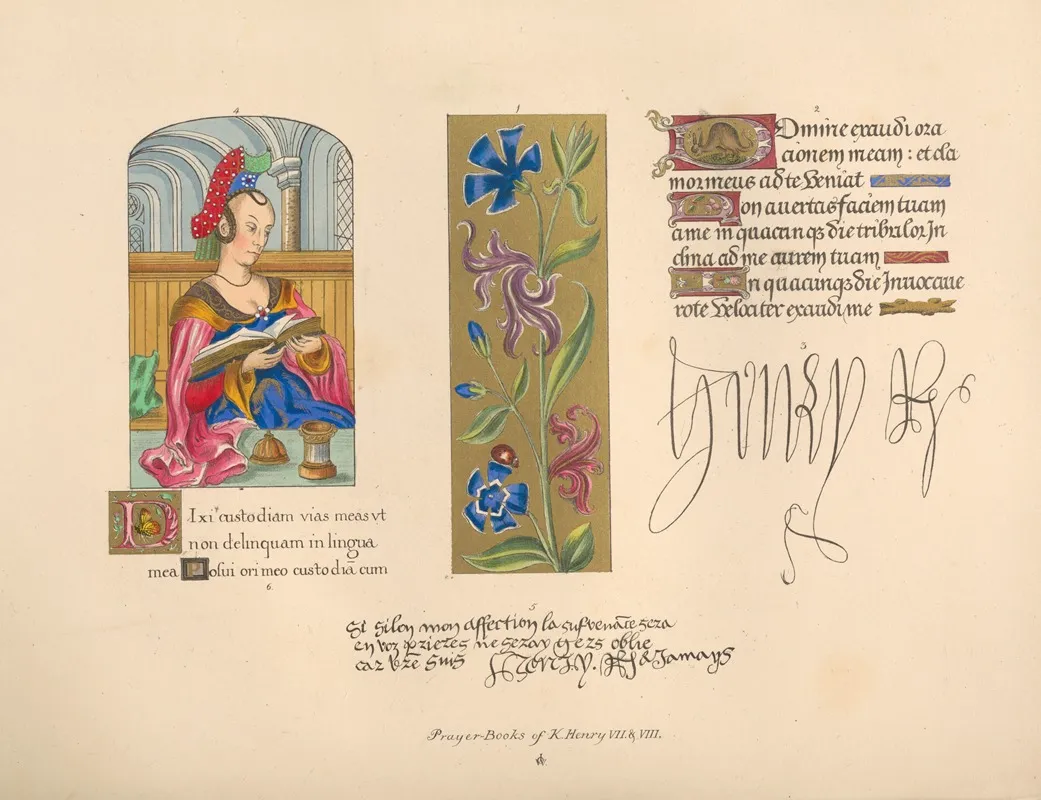 4
1
2
Domine exaudi ora
cionem meam : et cla
mor meus ad te veniat
Non auertas faciem tuam
a me in quacunqz die tribulor In
clina ad me aurem tuam
In quacunqz die Inuocaue
ro te velociter exaudi me
3
Henry R
DIxi custodiam vias meas vt
non delinquam in lingua
mea Posui ori meo custodiā cum
6.
5
Si silon mon affection la sufvenāce sera
en voz prieres ne seray gers oblie
car vr̄e suis Henry. R & Jamays
Prayer-Books of K. Henry VII. & VIII.